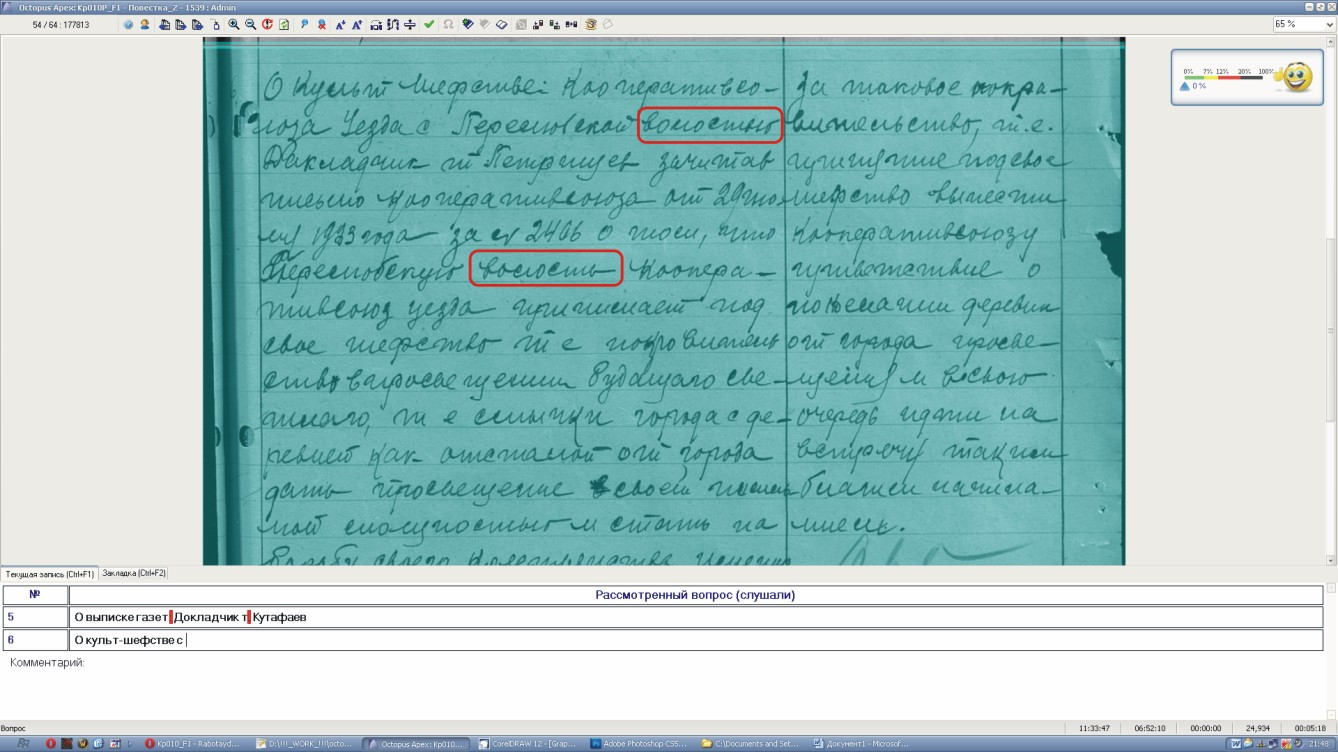 Octopus Apex: Кр010Р_F1 - Повестка_2 - 1539 : Admin
54 / 64 : 177813
65 %
0% 7% 12% 20% 100%
0 %
О Культ Шефстве: Кооперативсо-
юза Уезда с Пересновской волостью
Докладчик т Петрищев зачитав
письмо Кооперативсоюза от 29 ию
ля 1923 года за № 2466 о том, что
Пересновскую волость Коопера-
тивсоюз уезда принимает под
свое шефство т е
просвещении будащаго све-
т е смычки города с де-
ревней как отсталой от города
дать просвещение в своей
и стать на
своего
За таковое покра-
вительство, т.е.
принятие под свое
шефство вынести
Кооперативсоюзу
приветствие о
деревни
от города просве-
и в свою
очередь идти на
встречу таким
благим начина-
ниям.
Текущая запись (Ctrl+F1) Закладка (Ctrl+F2)
№ Рассмотренный вопрос (слушали)
5 О выписке газет Докладчик т Кутафаев
6 О культ-шефстве с
Комментарий:
Вопрос 11:33:47 06:52:10 00:00:00 24,934 00:05:18
Кр010_F1 - Rabotayd... D:\!!!_WORK_!!!\octo... Octopus Apex: Кр010... CorelDRAW 12 - [Grap... Adobe Photoshop CS5... C:\Documents and Set... Документ1 - Microsof... 21:48